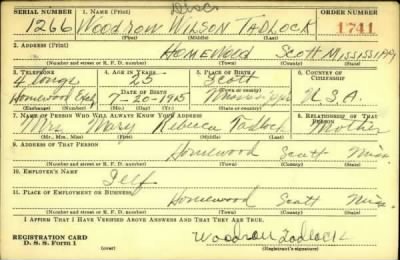 Discs
SERIAL NUMBER 1. NAME (Print) ORDER NUMBER
1266 Woodrow Wilson Tadlock 1741
(First) (Middle) (Last)
2. ADDRESS (Print)
Homewood Scott Mississippi
(Number and street or R. F. D. number) (Town) (County) (State)
3. TELEPHONE 4. AGE IN YEARS 5. PLACE OF BIRTH 6. COUNTRY OF CITIZENSHIP
4 longs 25 Scott
Homewood Exch DATE OF BIRTH (Town or county)
7-20-1915 Mississippi U.S.A.
(Exchange) (Number) (Mo.) (Day) (Yr.) (State or country)
7. NAME OF PERSON WHO WILL ALWAYS KNOW YOUR ADDRESS 8. RELATIONSHIP OF THAT PERSON
Mrs Mary Rebecca Tadlock Mother
(Mr., Mrs., Miss) (First) (Middle) (Last)
9. ADDRESS OF THAT PERSON
Homewood Scott Miss
(Number and street or R. F. D. number) (Town) (County) (State)
10. EMPLOYER'S NAME
Self
11. PLACE OF EMPLOYMENT OR BUSINESS
Homewood Scott Miss.
(Number and street or R. F. D. number) (Town) (County) (State)
I AFFIRM THAT I HAVE VERIFIED ABOVE ANSWERS AND THAT THEY ARE TRUE.
REGISTRATION CARD Woodrow Tadlock
D. S. S. Form 1 (over) (Registrant's signature)